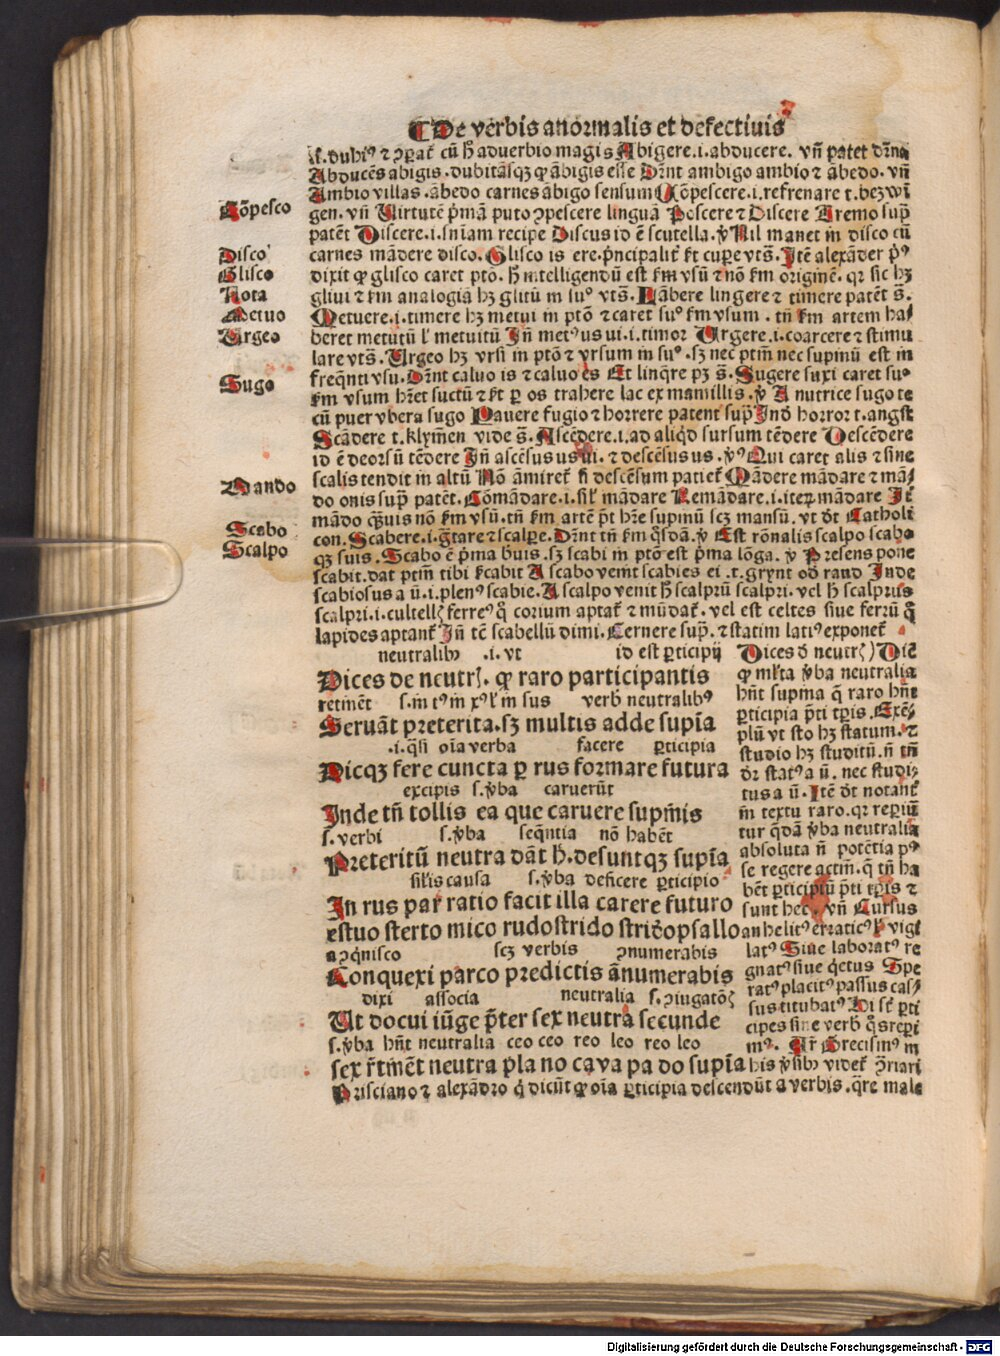 De verbis anormalis et defectiuis
.i. dubiꝰ ⁊ ꝯꝑat᷑ cū ħ aduerbio magis Abigere .i. abducere. vñ patet
Abducēs abigis. dubitāsqꝫ ꝙ ābigis esse Dr̄nt ambigo ambio ⁊ ābedo. vñ
Ambio villas. ābedo carnes ābigo sensum Cōpescere .i. refrenare t. bezwi
Cōpesco
gen. vñ Uirtutē p̄mā puto ꝯpescere linguā Poscere ⁊ Discere Fremo sup̄
patēt Discere .i. sniam recipe Discus id ē scutella. ꝟ Nil manet in disco cū
Disco
carnes mādere disco. Glisco is ere. p̄ncipalit᷑ ẜt cuꝑe vts̄. Itē alexāder pͥꝰ
Glisco
dixit ꝙ glisco caret ptō. ħ intelligendū est ẜm vsū ⁊ nō ẜm originē. qr sic hꝫ
Nota
gliui ⁊ ẜm analogiā hꝫ glitū in suꝰ vts̄. Lābere lingere ⁊ timere patēt s̄.
Metuo
Metuere .i. timere hꝫ metui in ptō ⁊ caret suꝰ ẜm vsum. tñ ẜm artem ha/
Urgeo
beret metutū ł metuitū Jñ metꝰus ui .i. timor Urgere .i. coarcere ⁊ stimu
lare vts̄. Urgeo hꝫ vrsi in ptō ⁊ vrsum in suꝰ. sꝫ nec ptm̄ nec supinū est in
Sugo
freq̄nti vsu. Dr̄nt caluo is ⁊ caluo es Et linq̄re pꝫ s̄. Sugere suxi caret suꝰ
ẜm vsum hr̄et suctū ⁊ ẜt ꝑ os trahere lac ex mamillis. ꝟ A nutrice sugo te
cū puer vbera sugo Pauere fugio ⁊ horrere patent sup̄ Ind̄ horror t. angst
Scādere t. klym̄en vide s̄. Ascēdere .i. ad aliq̇d sursum tēdere Descēdere
id ē deorsū tēdere Jñ ascēsus us ui. ⁊ descēsus us. ꝟꝰ Qui caret alis ⁊ sine
scalis tendit in altū Nō āmiret᷑ si descēsum patiet᷑ Mādere mādare ⁊ mā/
Mando
do onis sup̄ patēt. Cōmādare .i. sil᷑ mādare Remādare .i. iteꝝ mādare Jtē
mādo q̄uis nō ẜm vsū. tñ ẜm artē p̄t hr̄e supinū scꝫ mansū. vt d̄t Catholi
Scabo
con. Scabere .i. g̈tare ⁊ scalꝑe. Dr̄nt tñ ẜm q̇sdā. ꝟ Est rōnalis scalpo scabo
Scalpo
qꝫ suis. Scabo ē p̄ma b̄uis. sꝫ scabi in ptō est p̄ma lōga. ꝟ Presens pone
scabit. dat ptm̄ tibi ẜcabit A scabo venit scabies ei .t. grynt od̓ raud Jnde
scabiosus a ū .i. plenꝰ scabie. A scalpo venit ħ scalprū scalpri. vel ħ scalprus
scalpri .i. cultellꝰ ferreꝰ q̇ corium aptat᷑ ⁊ mūdat᷑. vel est celtes siue ferrū q̄
lapides aptant᷑ Jñ tē scabellū dimi. Cernere sup̄. ⁊ statim latiꝰ exponet᷑
neutralibꝫ .i. vt id est ꝑticipij
Dices de neutrꝭ. ꝙ raro participantis
retinēt s. in tꝰ in xꝰ ł in sus verb̓ neutralibꝰ
Seruāt preterita. sꝫ multis adde supīa
.i. q̄si oīa verba facere ꝑticipia
Dicqꝫ fere cuncta ꝑ rus formare futura
excipis s. ꝟba caruerūt
Jnde tñ tollis ea que caruere supinis
s. verbi s. ꝟba seq̄ntia nō habēt
Preteritū neutra dāt h̓. desuntqꝫ supīa
sil᷑is causa s. ꝟba deficere ꝑticipio
Jn rus par ratio facit illa carere futuro
estuo sterto mico rudo strido strido psallo
a ꝯq̄nisco scꝫ verbis ꝯnumerabis
Conquexi parco predictis ānumerabis
dixi associa neutralia s. ꝯiugatōꝭ
Ut docui iūge p̄ter sex neutra secunde
s. ꝟba hñt neutralia ceo ceo reo leo reo leo
sex r̄tinēt neutra pla no ca va pa do supīa
Dices d̓ neutrꝭ) Dic̄
ꝙ ml̓ta ꝟba neutralia
hñt supina q̄ raro hñt
ꝑticipia p̄ti tꝑis. Exē/
plū vt sto hꝫ statum. ⁊
studio hꝫ studitū. ñ tñ
d̓r statꝰ a ū. nec studi/
tus a ū. Jtē d̓t notant᷑
in textu raro. qr reperiū
tur q̄dā ꝟba neutralia
absoluta ñ potētia pꝰ
se regere actm̄. q̄ tñ ha
bēt ꝑticipiū p̄ti tꝑis ⁊
sunt hec. vñ Cursus
anhelitꝰ erraticꝰ ł vigi
latꝰ Siue laboratꝰ re
gnatꝰ siue q̇etus Spe
ratꝰ placitꝰ passus cas/
sus titubatꝰ Di st̄ ꝑti
cipes sine verb̓ q̇s reperi
mꝰ. Ar̄ Grecismꝰ in
his ꝟsibꝫ videt᷑ ꝯ̄riari
Prisciano ⁊ alexādro q̇ dicūt ꝙ oīa ꝑticipia descendūt a verbis. q̄re male
Digitalisierung gefördert durch die Deutsche Forschungsgemeinschaft - DFG